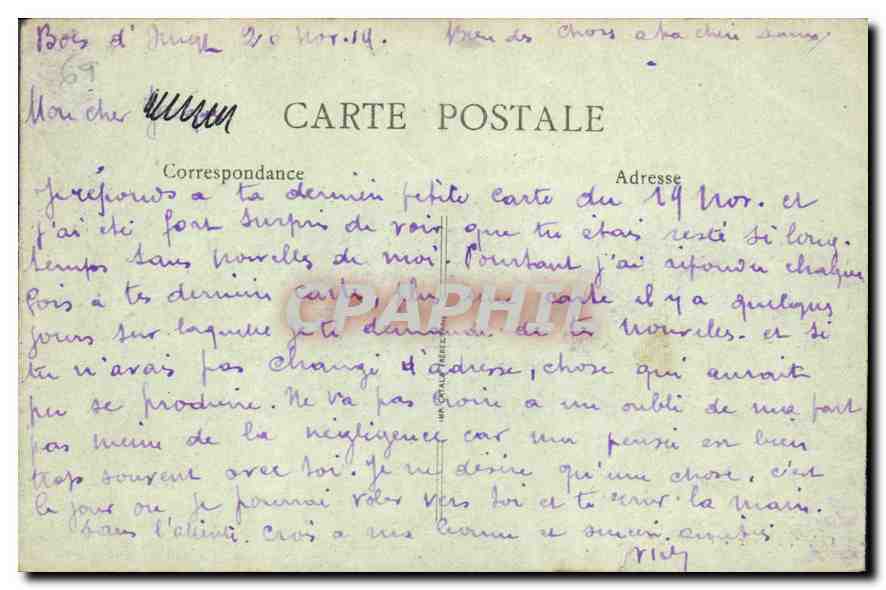 Bois d' 20 Nov. 19. Bien des choses a ta chère
69
Mon cher
CARTE POSTALE
Correspondance Adresse
Je réponds a ta dernière petite carte du 14 Nov. et
j'ai été fort surpris de voir que tu étais resté si long-
temps sans nouvelles de moi. Pourtant j'ai répondu chaque
fois à tes dernières cartes, une carte il y a quelques
jours sur laquelle je te demande de tes nouvelles. et si
tu n'avais pas changé d'adresse, chose qui aurait
pu se produire. Ne va pas croire a un oubli de ma part
pas meme de la négligence car ma pensée est bien
trop souvent avec toi. Je ne désire qu'une chose, c'est
le jour ou je pourrai voler vers toi et te serrer la main.
Dans l'attente. crois a ma bonne et sincère amitié
CPAPHIL
IMP. CATALA FRÈRES, PARIS